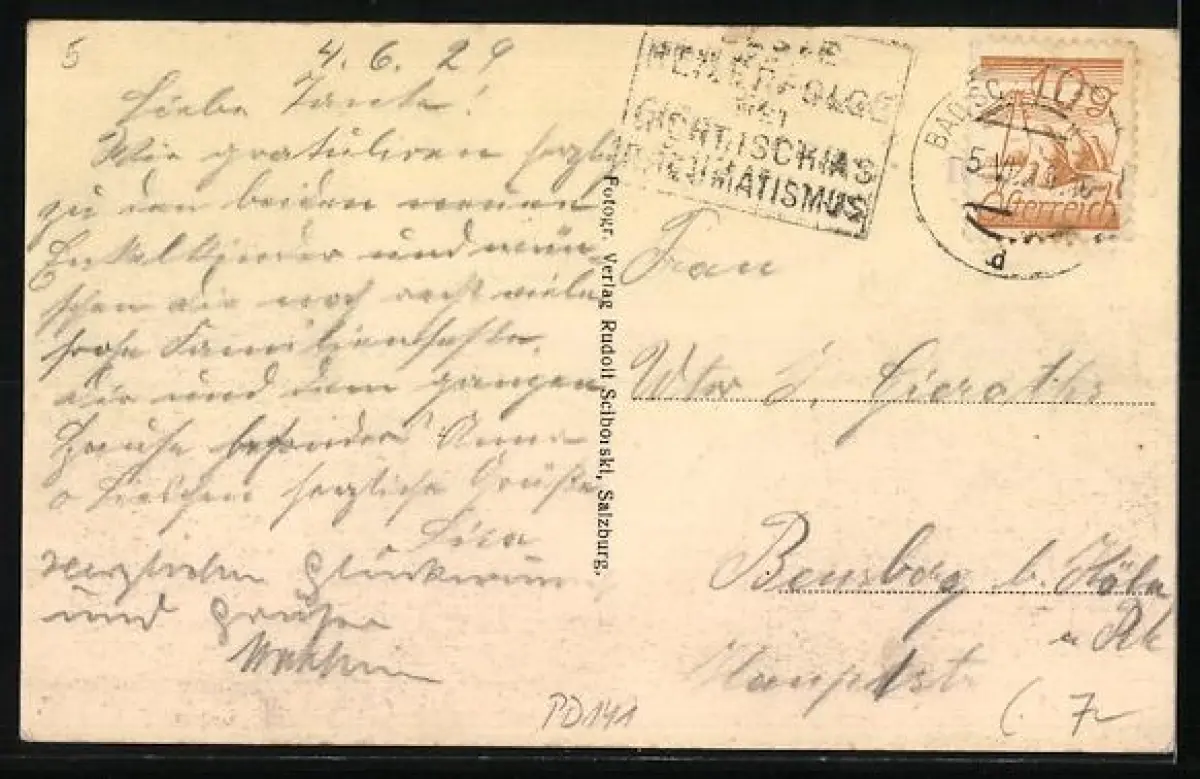 5
4. 6. 29
Liebe Tante!
Wir gratulieren herzlich
zu den beiden neuen
Enkelkinder und wün-
schen dir noch recht viele
frohe Familienfeste.
Dir und dem ganzen
Hause besonders Anna
Lieschen herzliche Grüße
Herzlichen Glückwun
und Grüße
Fotogr. Verlag Rudolf Sciborski, Salzburg.
BESTE
HEILERFOLGE
BEI
GICHT, ISCHIAS
RHEUMATISMUS
10g
Österreich
BAD
d
Frau
Wtw J. Gierath
Bensberg b. Köln
a Rh
Hauptstr
PD141
7